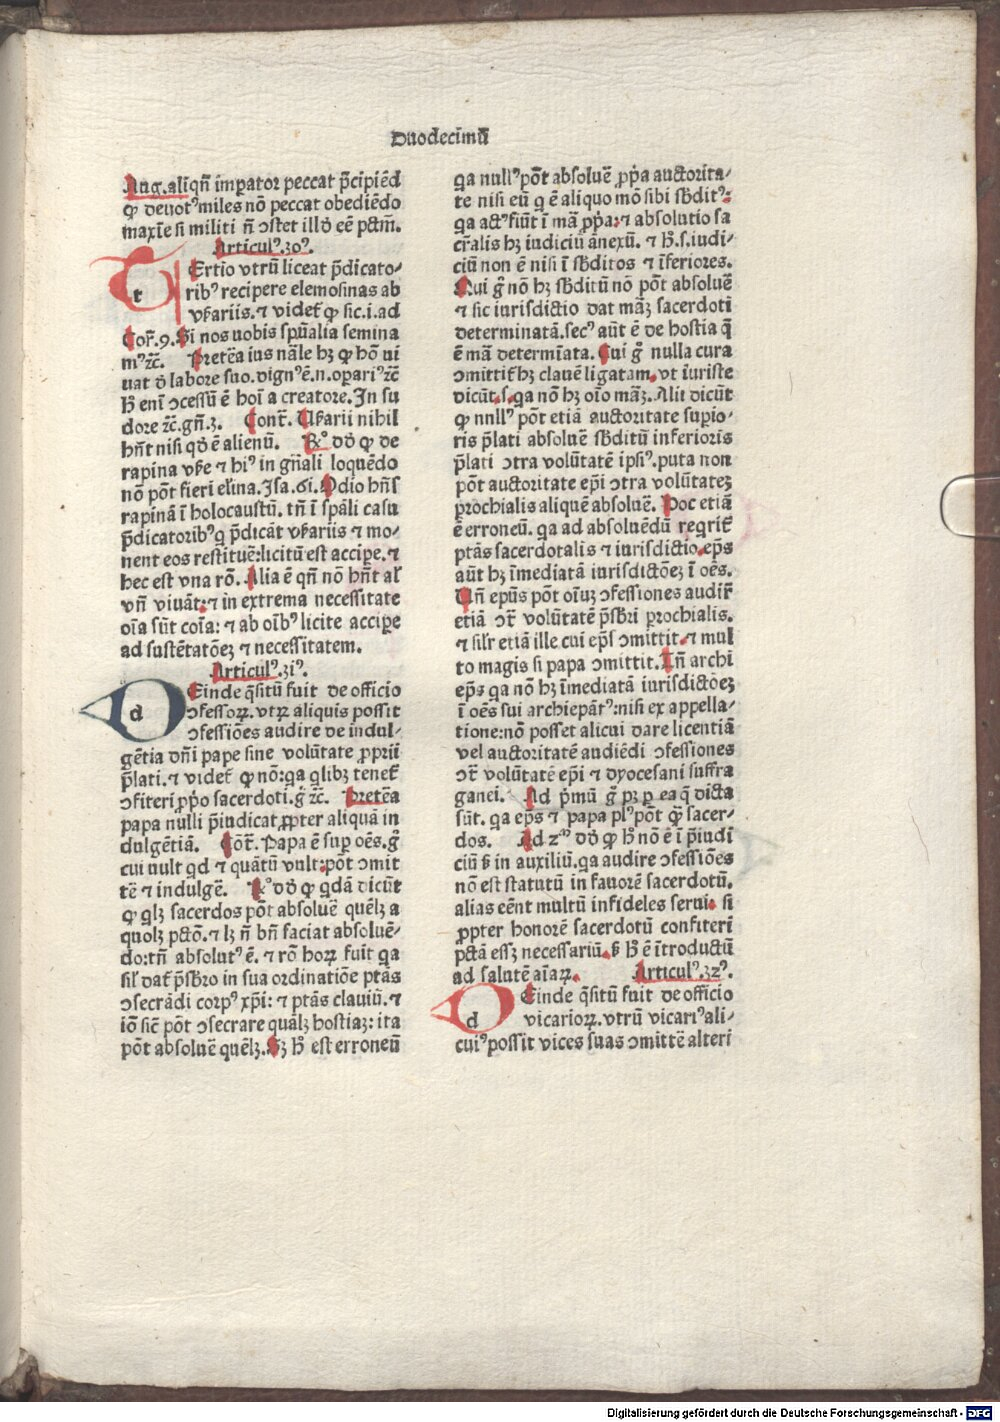 Duodecimū
Aug. aliqn̄ imꝑator peccat p̄cipiēd
ꝙ deuotꝰ miles nō peccat obediēdo
maxīe si militi n̄ ↄstet illḋ eē pctm̄.
Articulꝰ.30ꝰ.
t Ertio vtrū liceat p̄dicato⸗
ribꝰ recipere elemosinas ab
vẜariis. ⁊ videt̄ ꝙ sic. i. ad
Cor̄.9. Si nos uobis spūalia semina
mꝰ ⁊c̄. Pretēa ius nāle hꝫ ꝙ hō ui
uat ḋ labore suo. dignꝰ ē. n. oꝑariꝰ ⁊c̄
H̄ eni ↄcessū ē hoī a creatore. In su
dore ⁊c̄. gn̄.3. Cont̄. Uẜarii nihil
hn̄t nisi qḋ ē alienū. ℞ꝰ ḋō ꝙ de
rapina vẜe ⁊ hiꝰ in gn̄ali loquēdo
nō pōt fieri elīna. Isa.61. Odio hn̄s
rapinā ī holocaustū. tn̄ ī spāli casu
p̄dicatoribꝰ q p̄dicāt vẜariis ⁊ mo⸗
nent eos restituē: licitū est acciꝑe. ⁊
hec est vna rō. Alia ē qn̄ nō hn̄t al̄
vn̄ viuāt: ⁊ in extrema necessitate
oīa sūt coīa: ⁊ ab oībꝰ licite acciꝑe
ad sustētatōeꝫ ⁊ necessitatem.
Articulꝰ.31ꝰ.
d Einde q̄situ̅ fuit de officio
ↄfessoꝝ. vtꝝ aliquis possit
ↄfessiōes audire de indul⸗
gētia dn̄i pape sine volūtate ꝓprii
p̄lati. ⁊ videt̄ ꝙ nō: qa qlibꝫ tenet̄
ↄfiteri ꝓpo sacerdoti. g̊ ⁊c̄. Pretēa
papa nulli p̄iudicat ꝓpter aliquā in
dulgētiā. Cōt̄. Papa ē suꝑ oēs. g̊
cui uult qd ⁊ quātū vult: pōt ↄmit
tē ⁊ indulgē. ℞ꝰ ḋō ꝙ qdā dicūt
ꝙ qlꝫ sacerdos pōt absoluē quēlꝫ a
quolꝫ pctō. ⁊ lꝫ n̄ bn̄ faciat absoluē⸗
do: tn̄ absolutꝰ ē. ⁊ rō hoꝝ fuit qa
sil̄ dat̄ p̄sbr̄o in sua ordinatiōe ptās
ↄsecrādi corpꝰ xp̄i: ⁊ ptās clauiū. ⁊
iō sic̄ pōt ↄsecrare quālꝫ hostiaꝫ: ita
pōt absoluē quēlꝫ. Sꝫ h̄ est erroneū
qa nullꝰ pōt absoluē ꝓp̄a auctorita⸗
te nisi eū q ē aliquo mō sibi sb̄ditꝰ:
qa actꝰ fiūt ī mā ꝓp̄a: ⁊ absolutio sa
cr̄alis hꝫ iudiciū ānexū. ⁊ h̄. s. iudi⸗
ciū non ē nisi ī sb̄ditos ⁊ īferiores.
Qui g̊ nō hꝫ sb̄ditū nō pōt absoluē
⁊ sic iurisdictio dat māꝫ sacerdoti
determinatā. secꝰ aūt ē de hostia q̄
ē mā determīata. Cui g̊ nulla cura
ↄmittit̄ hꝫ clauē ligatam. vt iuriste
dicūt. s. qa nō hꝫ oīo māꝫ. Alii dicūt
ꝙ nullꝰ pōt etiā auctoritate suꝑio⸗
ris p̄lati absoluē sb̄ditū inferioris
p̄lati ↄtra volūtatē ipsiꝰ. puta non
pōt auctoritate ep̄i ↄtra volūtateꝫ
ꝑrochialis aliquē absoluē. Hoc etiā
ē erroneū. qa ad absoluēdū reqrit̄
ptās sacerdotalis ⁊ iurisdictio. ep̄s
aūt hꝫ īmediatā iurisdictōeꝫ ī oēs.
Un̄ ep̄us pōt oīuꝫ ↄfessiones audir̄
etiā ↄt̄ volūtatē p̄sbr̄i ꝑrochialis.
⁊ sil̄r etiā ille cui ep̄s ↄmittit. ⁊ mul
to magis si papa ↄmittit. Tn̄ archi
ep̄s qa nō hꝫ īmediatā iurisdictōeꝫ
ī oēs sui archiepātꝰ: nisi ex appella⸗
tione: nō posset alicui dare licentiā
vel auctoritatē audiēdi ↄfessiones
ↄt̄ volūtatē ep̄i ⁊ dyocesani suffra
ganei. Ad p̄mū g̊ pꝫ ꝑ ea q̄ dicta
sūt. qa ep̄s ⁊ papa plꝰ pōt q̄ꝫ sacer⸗
dos. Ad 2ᵐ ḋō ꝙ h̄ nō ē ī p̄iudi
ciū ẜ in auxiliū. qa audire ↄfessiōes
nō est statutū in fauorē sacerdotū.
alias eēnt multū infideles serui. si
ꝓpter honorē sacerdotū confiteri
pctā esset necessariū. ẜ h̄ ē ītroductū
ad salutē aīaꝝ. Articulꝰ.32ꝰ.
d Einde q̄sitū fuit de officio
vicarioꝝ. vtrū vicariꝰ ali⸗
cuiꝰ possit vices suas ↄmittē alteri
Digitalisierung gefördert durch die Deutsche Forschungsgemeinschaft - DFG